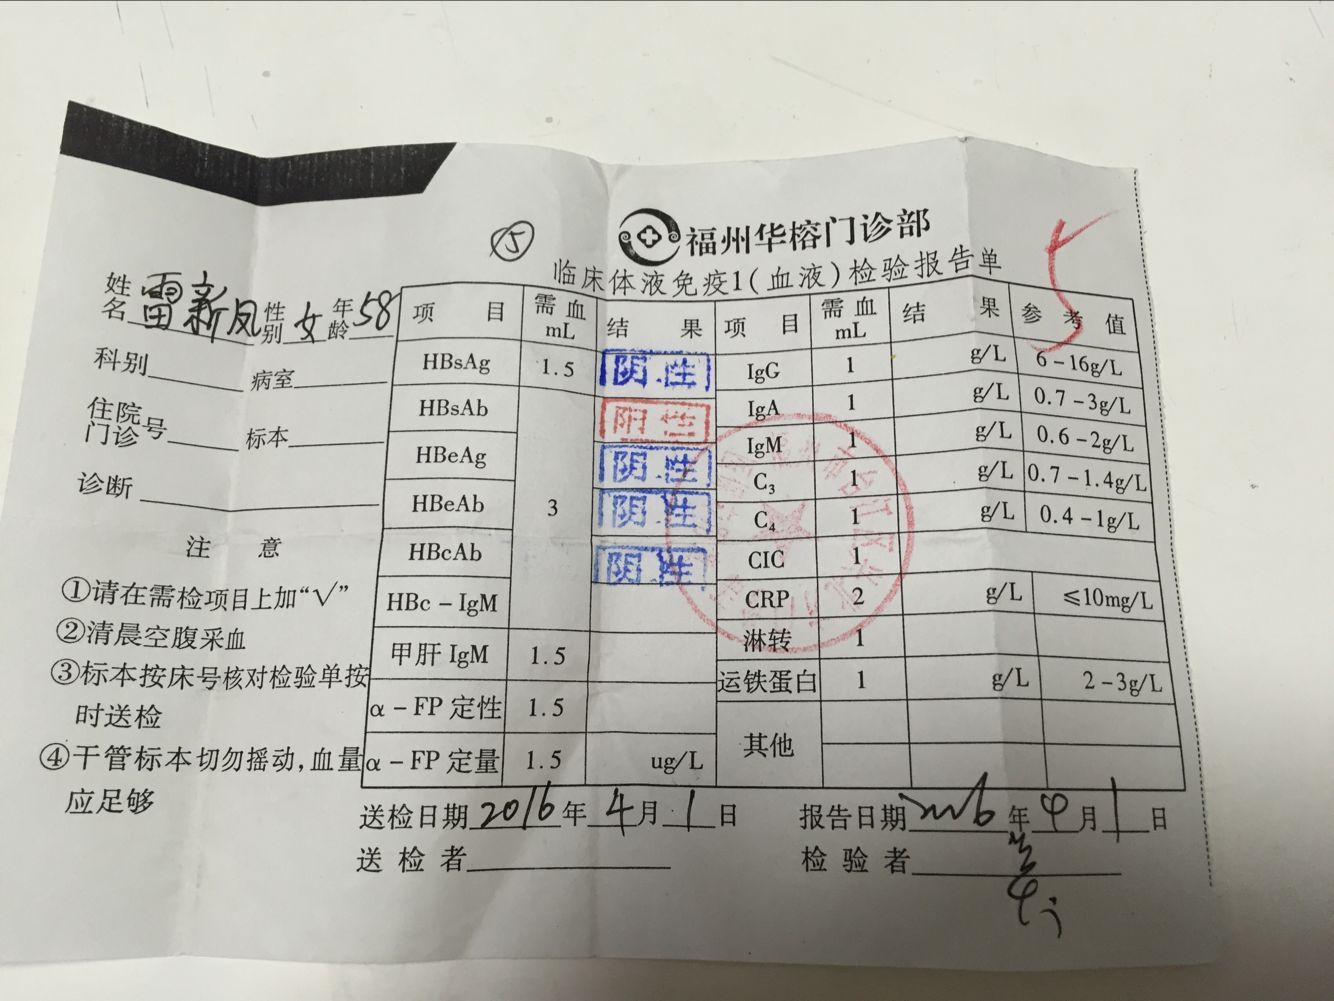 ⑮
福州华榕门诊部
临床体液免疫1(血液)检验报告单
姓名 雷新凤 性别 女 年龄 58
科别 病室
住院门诊号 标本
诊断
注 意
①请在需检项目上加“√”
②清晨空腹采血
③标本按床号核对检验单按
时送检
④干管标本切勿摇动,血量
应足够
项 目 需血mL 结 果 项 目 需血mL 结 果 参考值
HBsAg 1.5 阴性 IgG 1 g/L 6-16g/L
HBsAb 阳性 IgA 1 g/L 0.7-3g/L
HBeAg 阴性 IgM 1 g/L 0.6-2g/L
HBeAb 3 阴性 C3 1 g/L 0.7-1.4g/L
HBcAb 阴性 C4 1 g/L 0.4-1g/L
HBc-IgM CIC 1
甲肝 IgM 1.5 CRP 2 g/L ≤10mg/L
α-FP 定性 1.5 淋转 1
α-FP 定量 1.5 ug/L 运铁蛋白 1 g/L 2-3g/L
其他
送检日期 2016 年 4 月 1 日 报告日期 2016 年 4 月 1 日
送检者 检验者